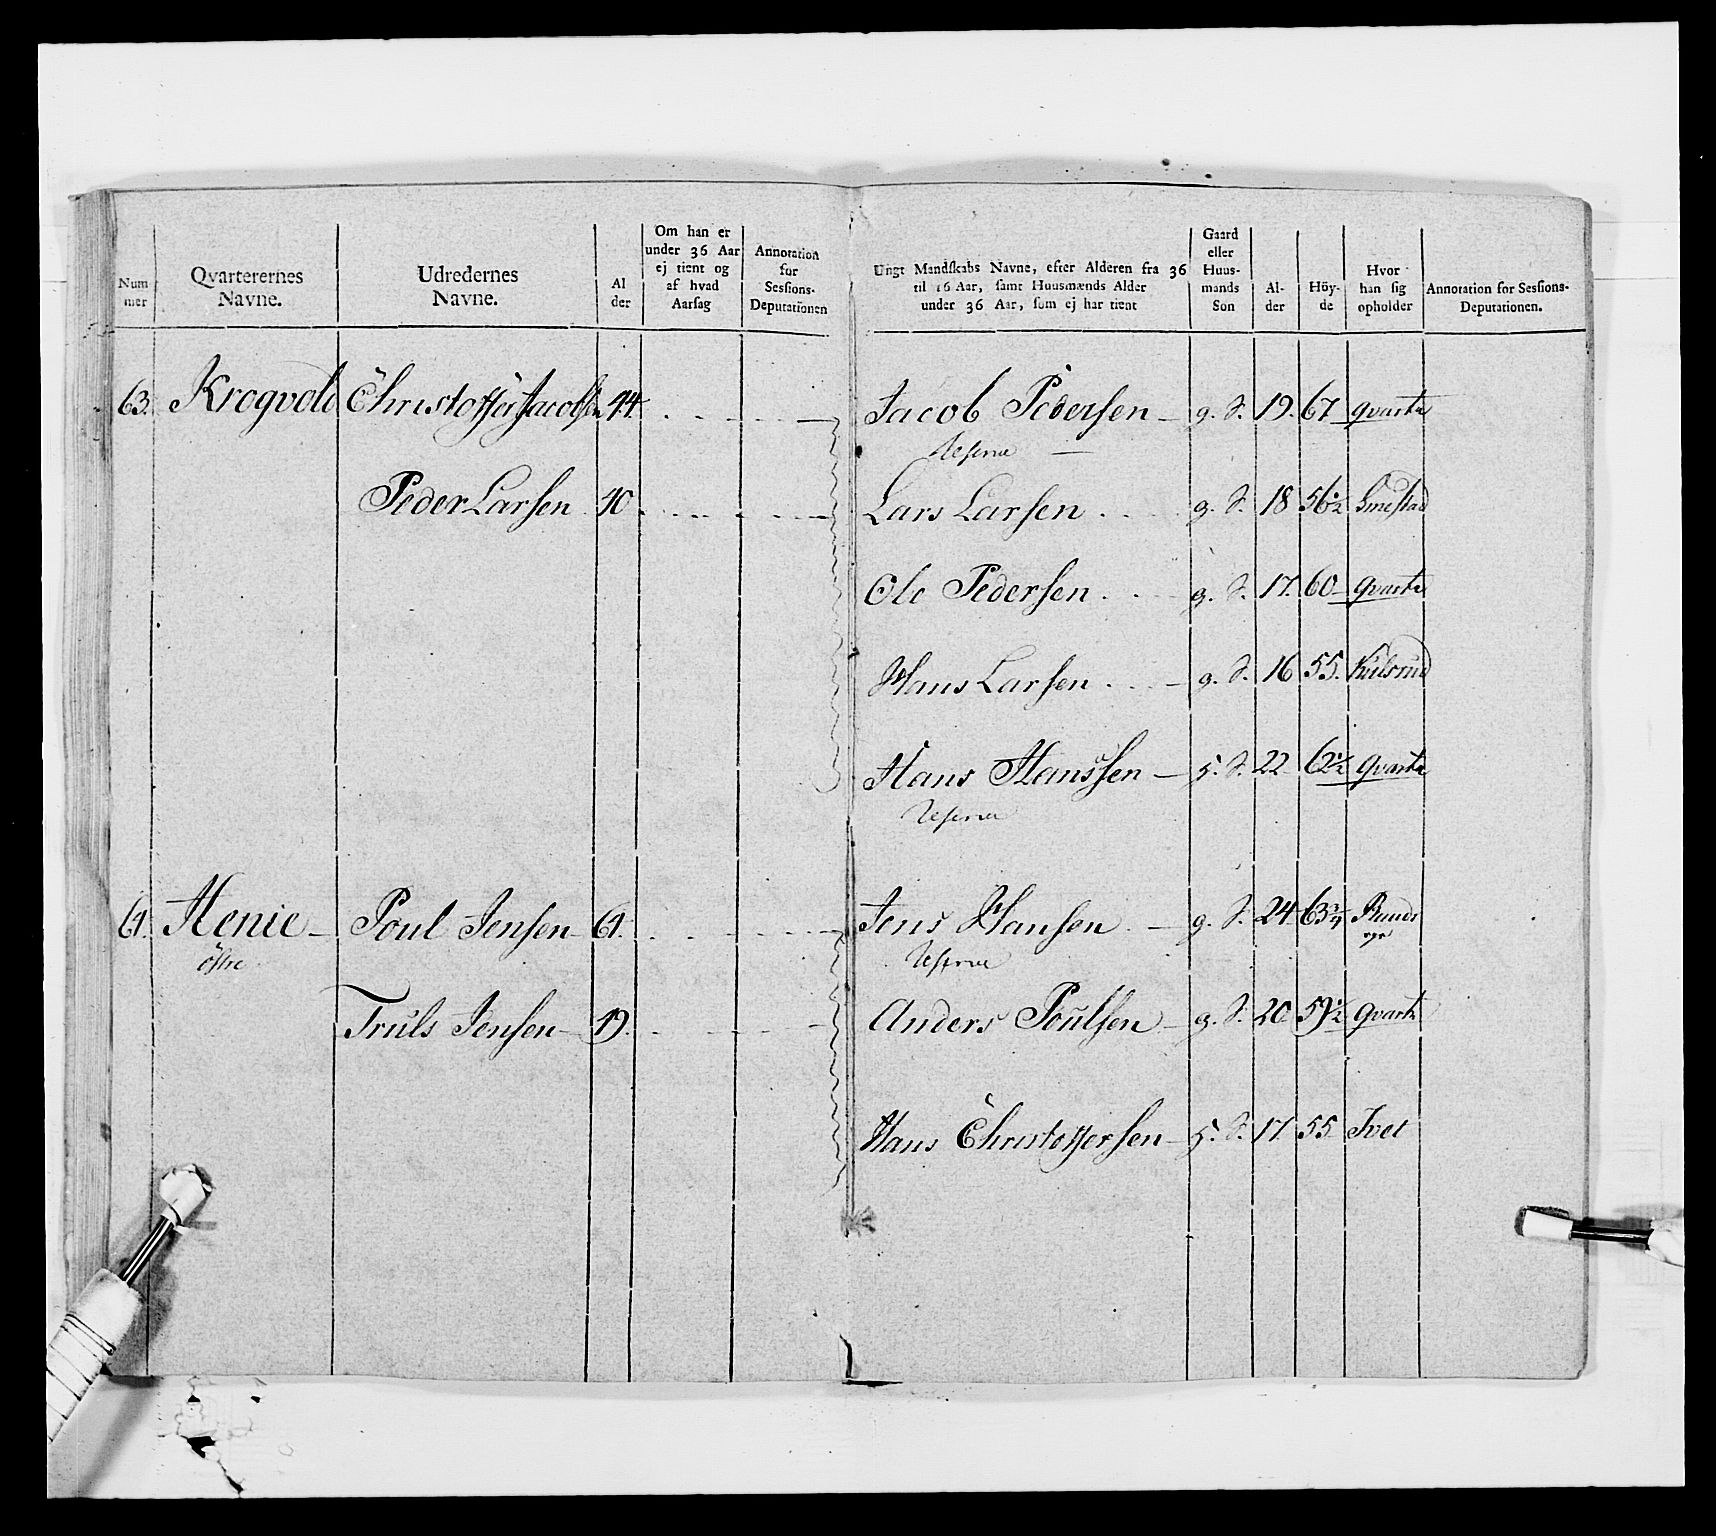 Num mer | Qvarterernes Navne. | Udredernes Navne. | Al der | Om han er under 36 Aar ej tient og af hvad Aarsag | Annotation for Sessions-Deputationen | Ungt Mandskabs Navne, efter Alderen fra 36 til 16 Aar, samt Huusmænds Alder under 36 Aar, som ej har tient | Gaard eller Huus-mands Son | Al-der | Höy-de | Hvor han sig opholder | Annotation for Sessions-Deputationen.
63. Krogvold Christoffer Jacobsen 44 Jacob Pedersen g. S. 19. 67 qvarte
Reserve
Peder Larsen 40 Lars Larsen g. S. 18 56 1/2 Smestad
Ole Pedersen g. S. 17. 60 qvarte
Hans Larsen g. S. 16 55.
Hans Hanssen S. 22 62 1/2 qvarte
Reserve
64. Henie Poul Jensen 64. Jens Hansen g. S. 24 63 3/4
östre Reserve
Truls Jensen 49. Anders Poulsen g. S. 20. 59 1/2 qvarte
Hans Christoffersen S. 17. 55 Tvet